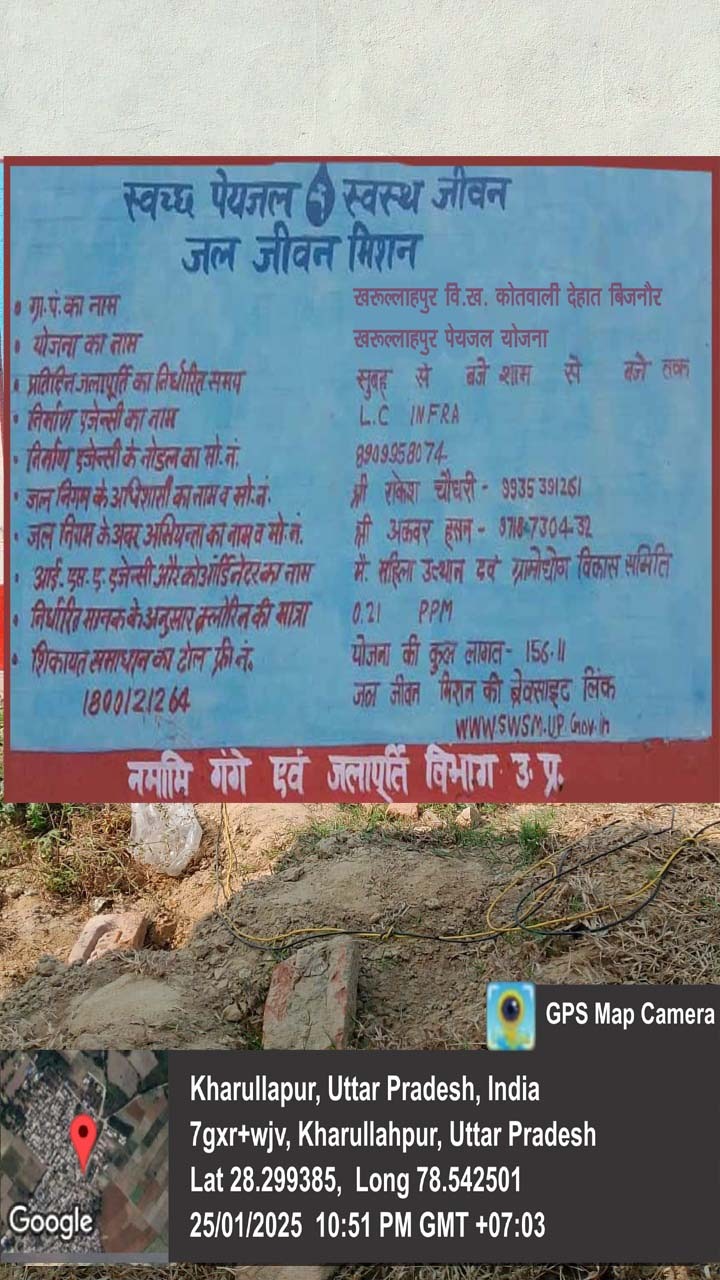 स्वच्छ पेयजल स्वस्थ जीवन
जल जीवन मिशन
• ग्रा.पं.का नाम खरूल्लाहपुर वि.ख. कोतवाली देहात बिजनौर
• योजना का नाम खरूल्लाहपुर पेयजल योजना
• प्रतिदिन जलापूर्ति का निर्धारित समय सुबह से बजे शाम से बजे तक
• निर्माण एजेन्सी का नाम L.C INFRA
• निर्माण एजेन्सी के नोडल का मो.नं. 8909958074
• जल निगम के अधिशासी का नाम व मो.नं. श्री राकेश चौधरी - 9935391261
• जल निगम के अवर अभियन्ता का नाम व मो.नं. श्री अकबर हसन - 9718-7304-32
• आई.एस.ए. एजेन्सी और कोऑर्डिनेटर का नाम मै. महिला उत्थान एवं ग्रामोद्योग विकास समिति
• निर्धारित मानक के अनुसार क्लोरिन की मात्रा 0.21 PPM
• शिकायत समाधान का टोल फ्री नं. योजना की कुल लागत - 156.11
1800121264 जल जीवन मिशन की ब्रेक्साइट लिंक
WWW.SWSM.UP.Gov.in
नमामि गंगे एवं जलापूर्ति विभाग उ. प्र.
GPS Map Camera
Kharullapur, Uttar Pradesh, India
7gxr+wjv, Kharullahpur, Uttar Pradesh
Lat 28.299385, Long 78.542501
25/01/2025 10:51 PM GMT +07:03
Google